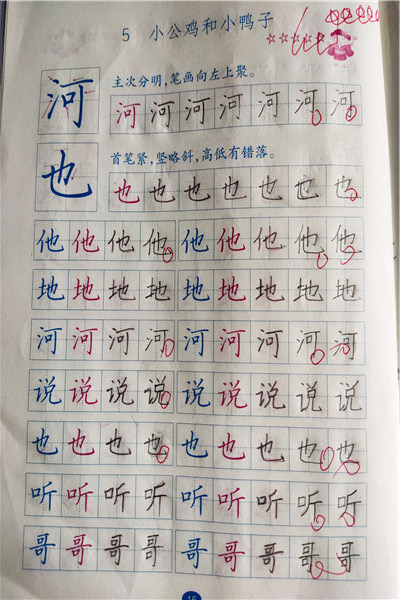 5 小公鸡和小鸭子
河 主次分明,笔画向左上聚。
河河河河河河河
也 首笔紧,竖略斜,高低有错落。
也也也也也也也
他他他他 他他他他他
地地地地 地地地地地
河河河河 河河河河河
说说说说 说说说说说
也也也也 也也也也也
听听听听 听听听听听
哥哥哥哥 哥哥哥哥哥
16